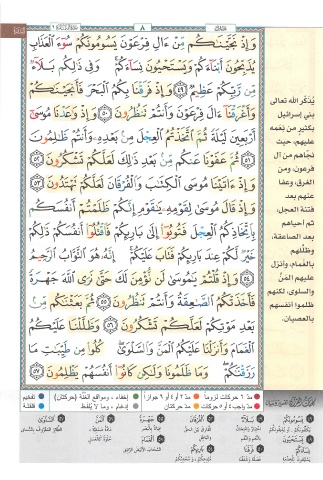 ٨
وَإِذْ نَجَّيْنَـٰكُم مِّنْ ءَالِ فِرْعَوْنَ يَسُومُونَكُمْ سُوٓءَ ٱلْعَذَابِ
يُذَبِّحُونَ أَبْنَآءَكُمْ وَيَسْتَحْيُونَ نِسَآءَكُمْ ۚ وَفِى ذَٰلِكُم بَلَآءٌ
مِّن رَّبِّكُمْ عَظِيمٌ ٤٩ وَإِذْ فَرَقْنَا بِكُمُ ٱلْبَحْرَ فَأَنجَيْنَـٰكُمْ
وَأَغْرَقْنَآ ءَالَ فِرْعَوْنَ وَأَنتُمْ تَنظُرُونَ ٥٠ وَإِذْ وَٰعَدْنَا مُوسَىٰٓ
أَرْبَعِينَ لَيْلَةً ثُمَّ ٱتَّخَذْتُمُ ٱلْعِجْلَ مِنۢ بَعْدِهِۦ وَأَنتُمْ ظَـٰلِمُونَ
٥١ ثُمَّ عَفَوْنَا عَنكُم مِّنۢ بَعْدِ ذَٰلِكَ لَعَلَّكُمْ تَشْكُرُونَ ٥٢
وَإِذْ ءَاتَيْنَا مُوسَى ٱلْكِتَـٰبَ وَٱلْفُرْقَانَ لَعَلَّكُمْ تَهْتَدُونَ ٥٣
وَإِذْ قَالَ مُوسَىٰ لِقَوْمِهِۦ يَـٰقَوْمِ إِنَّكُمْ ظَلَمْتُمْ أَنفُسَكُم
بِٱتِّخَاذِكُمُ ٱلْعِجْلَ فَتُوبُوٓا۟ إِلَىٰ بَارِئِكُمْ فَٱقْتُلُوٓا۟ أَنفُسَكُمْ ذَٰلِكُمْ
خَيْرٌ لَّكُمْ عِندَ بَارِئِكُمْ فَتَابَ عَلَيْكُمْ ۚ إِنَّهُۥ هُوَ ٱلتَّوَّابُ ٱلرَّحِيمُ
٥٤ وَإِذْ قُلْتُمْ يَـٰمُوسَىٰ لَن نُّؤْمِنَ لَكَ حَتَّىٰ نَرَى ٱللَّهَ جَهْرَةً
فَأَخَذَتْكُمُ ٱلصَّـٰعِقَةُ وَأَنتُمْ تَنظُرُونَ ٥٥ ثُمَّ بَعَثْنَـٰكُم مِّنۢ
بَعْدِ مَوْتِكُمْ لَعَلَّكُمْ تَشْكُرُونَ ٥٦ وَظَلَّلْنَا عَلَيْكُمُ
ٱلْغَمَامَ وَأَنزَلْنَا عَلَيْكُمُ ٱلْمَنَّ وَٱلسَّلْوَىٰ ۖ كُلُوا۟ مِن طَيِّبَـٰتِ مَا
رَزَقْنَـٰكُمْ ۖ وَمَا ظَلَمُونَا وَلَـٰكِن كَانُوٓا۟ أَنفُسَهُمْ يَظْلِمُونَ ٥٧
يُذكّر الله تعالى
بني إسرائيل
بكثير من نعمه
عليهم، حيث
نجّاهم من آل
فرعون، ومن
الغرق، وعفا
عنهم بعد
فتنة العجل،
ثم أحياهم
بعد الصاعقة،
وظلّلهم
بالغمام، وأنزل
عليهم المنّ
والسلوى، لكنهم
ظلموا أنفسهم
بالعصيان.
مدّ ٦ حركات لزوماً مدّ ٢ أو ٤ أو ٦ جوازاً إخفاء، ومواقع الغنّة (حركتان) تفخيم
مدّ واجب ٤ أو ٥ حركات مدّ حركتان إدغام، وما لا يُلفظ قلقلة